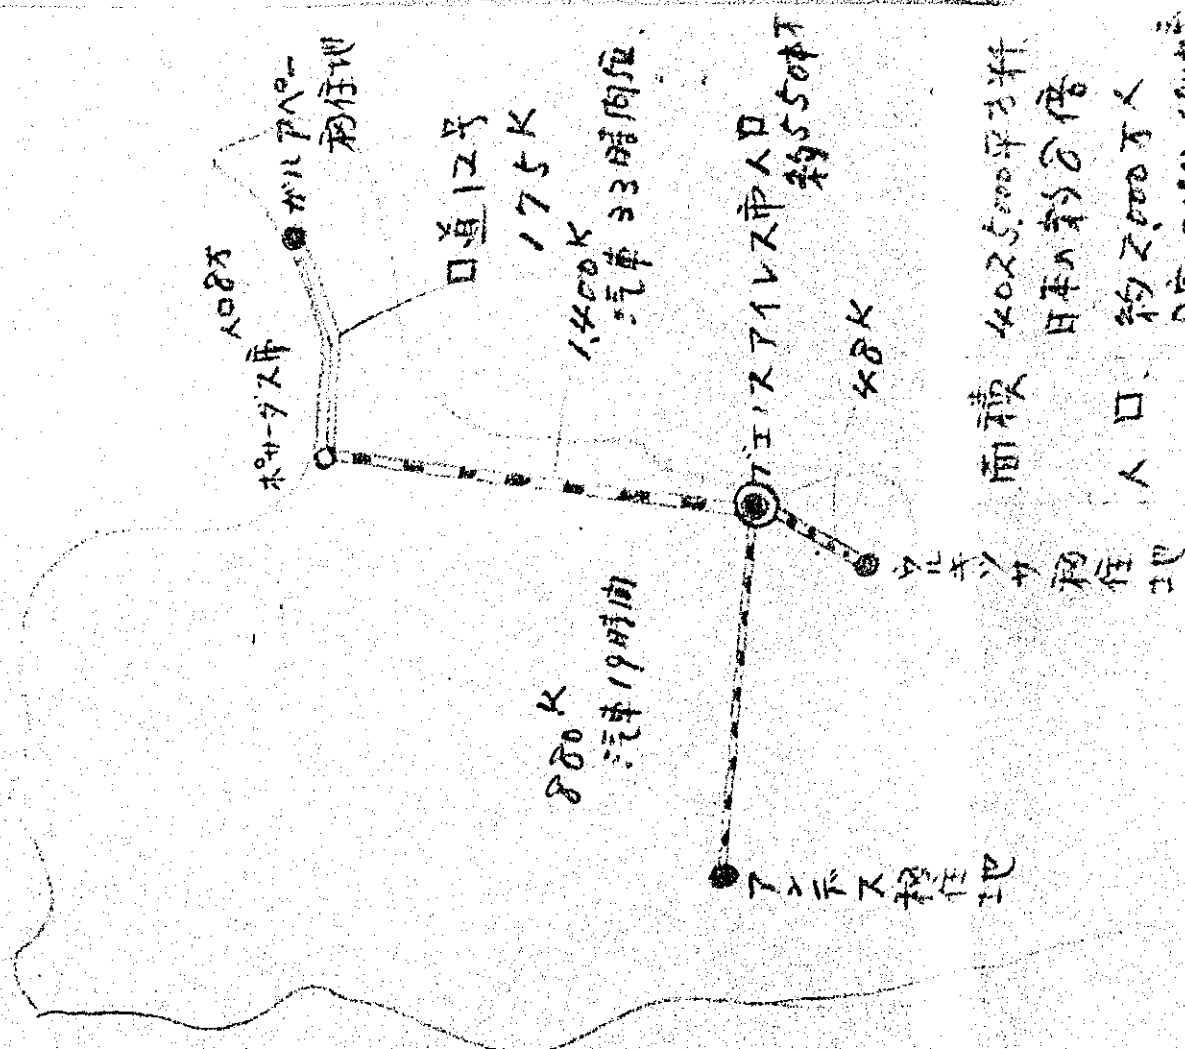 ガルアペー
移住地
人口8万
ポサーダス市
口道12号
175K
1,400K
汽車33時間位
ブエノスアイレス市人口
約550万
48K
ウルキッサ移住地
880K
汽車19時間
アンデス移住地
面積 4025,000平方粁
日本の約8倍
人口. 約2000万人